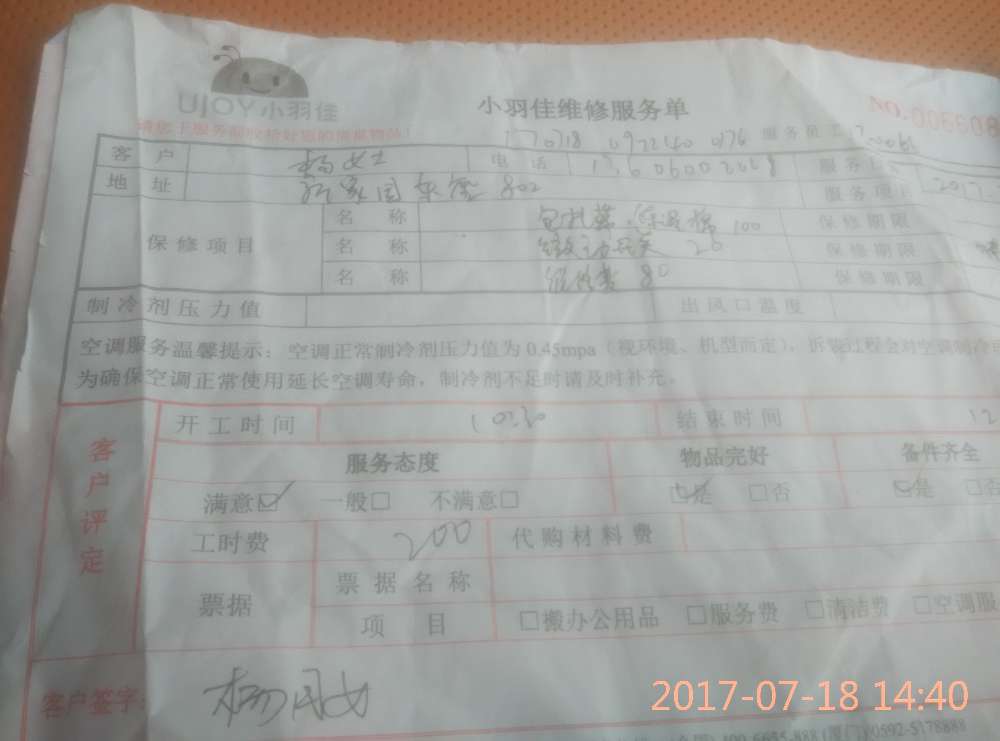 UJOY小羽佳
小羽佳维修服务单
NO.
170718 092240 0176 服务员工
客户 杨女士 电话
地址 802 服务项目 2017-
保修项目 名称 保温棉 100 保修期限
名称 开关 20 保修期限
名称 维修费 80 保修期限
制冷剂压力值 出风口温度
空调服务温馨提示：空调正常制冷剂压力值为0.45mpa（视环境、机型而定），拆装过程会对空调制冷
为确保空调正常使用延长空调寿命，制冷剂不足时请及时补充。
客户评定
开工时间 10:30 结束时间 12
服务态度 物品完好 备件齐全
满意☑ 一般□ 不满意□ ☑是 □否 ☑是 □否
工时费 200 代购材料费
票据 票据名称
项目 □搬办公用品 □服务费 □清洁费 □空调服
客户签字：
2017-07-18 14:40
(厦门)0592-5178888